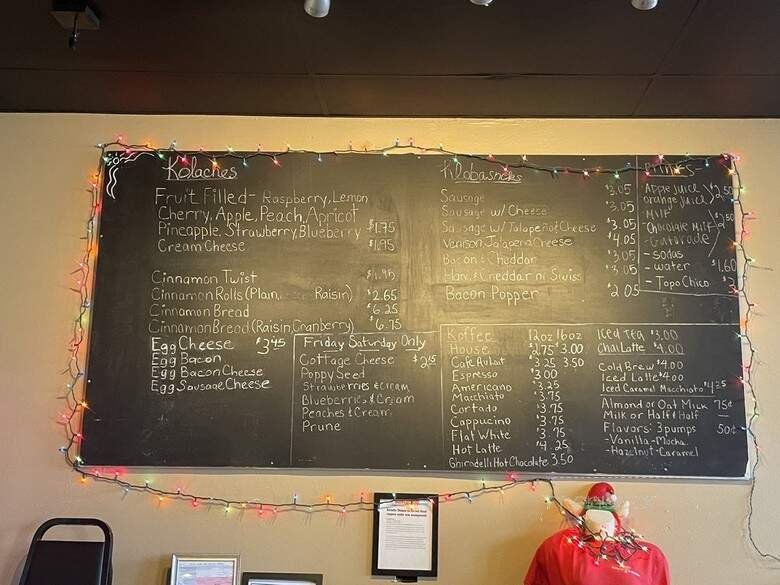 Kolaches
Fruit Filled- Raspberry, Lemon
Cherry, Apple, Peach, Apricot
Pineapple, Strawberry, Blueberry $1.75
Cream Cheese $1.95
Cinnamon Twist
Cinnamon Rolls (Plain, Raisin) $2.65
Cinnamon Bread $6.25
Cinnamon Bread (Raisin, Cranberry) $6.75
Egg Cheese $3.45
Egg Bacon
Egg Bacon Cheese
Egg Sausage Cheese
Friday Saturday Only
Cottage Cheese
Poppy Seed
Strawberries & Cream
Blueberries & Cream
Peaches & Cream
Prune
Klobasneks
Sausage $3.05
Sausage w/ Cheese $3.05
Sausage w/ Jalapeño Cheese $3.05
Venison Jalapeno Cheese $4.05
Bacon & Cheddar $3.05
Ham & Cheddar or Swiss $3.05
Bacon Popper $2.05
Drinks
Apple Juice $2.50
orange Juice
Milk
Chocolate Milk
-Gatorade
-sodas
-water $1.60
-Topo Chico
Koffee 12oz 16oz
House 2.75 3.00
Cafe Aulait 3.25 3.50
Espresso 3.00
Americano 3.25
Macchiato 3.75
Cortado 3.75
Cappucino 3.75
Flat White 3.75
Hot Latte 4.25
Ghiradelli Hot Chocolate 3.50
Iced Tea $3.00
Chai Latte 4.00
Cold Brew $4.00
Iced Latte $4.00
Iced Caramel Macchiato $4.25
Almond or Oat Milk 75¢
Milk or Half & Half —
Flavors: 3 pumps 50¢
-Vanilla -Mocha
-Hazelnut -Caramel